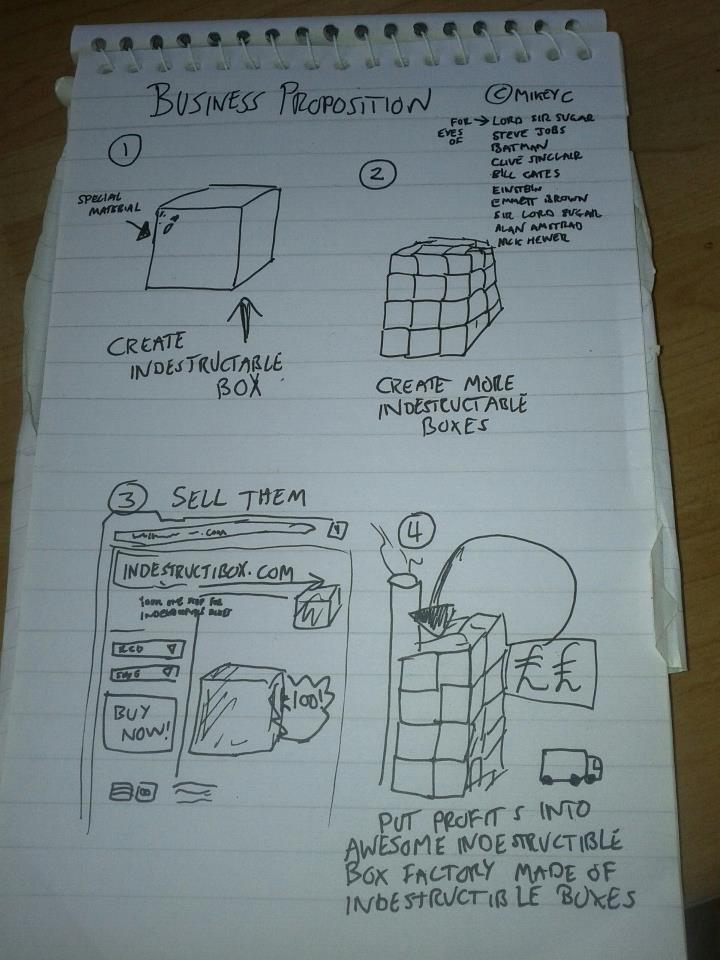 BUSINESS PROPOSITION
© MIKEYC
FOR EYES OF → LORD SIR SUGAR
STEVE JOBS
BATMAN
CLIVE SINCLAIR
BILL GATES
EINSTEIN
EMMETT BROWN
SIR LORD SUGAR
ALAN AMSTRAD
NICK HEWER
1
SPECIAL
MATERIAL
CREATE
INDESTRUCTABLE
BOX
2
CREATE MORE
INDESTRUCTABLE
BOXES
3 SELL THEM
.COM
INDESTRUCTIBOX.COM
YOUR ONE STOP FOR
RED
BUY
NOW!
£100!
4
££
PUT PROFITS INTO
AWESOME INDESTRUCTIBLE
BOX FACTORY MADE OF
INDESTRUCTIBLE BOXES